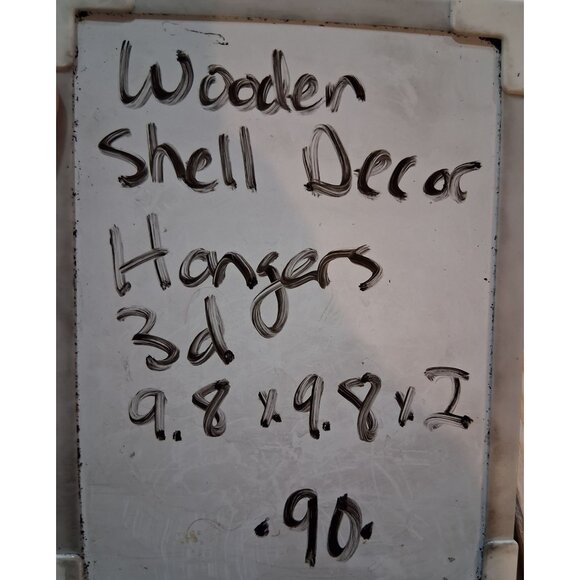 Wooden
Shell Decor
Hangers
3d
9.8 x 9.8 x I
.90.